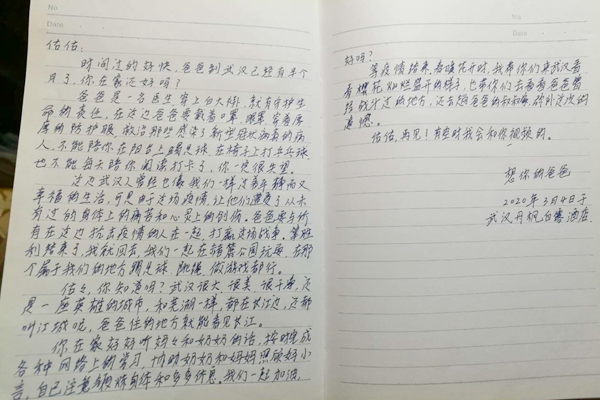 No
Date
佑佑：
时间过的好快，爸爸到武汉已经有半个
月了，你在家还好吗？
爸爸是一名医生，穿上白大褂，就有守护生
命的责任，在这边爸爸穿戴着口罩、眼罩，穿着厚
厚的防护服，救治那些感染了新型冠状病毒的病
人，不能陪你在阳台上踢足球，在椅子上打乒乓球，
也不能每天陪你阅读打卡了，你一定很失望。
这边武汉人曾经也像我们一样过着平静而又
幸福的生活，可是由于这场疫情，让他们遭受了从未
有过的身体上的痛苦和心灵上的创伤。爸爸要与所
有在这边抗击疫情的人在一起，打赢这场战争。等胜
利结束了，我就回去，我们一起在公园玩耍，在那
个属于我们的地方踢足球、跳绳、做游戏都行。
佑佑，你知道吗？武汉很大、很美、很干净，这
是一座英雄的城市，和芜湖一样，都在长江边，还都
叫江城呢，爸爸住的地方就能看见长江。
你在家好好听妈妈和奶奶的话，按时完成
各种网络上的学习，奶奶和妈妈照顾好小
言，自己注意锻炼身体和多多休息。我们一起加油，
No
Date
好吗？
等疫情结束，春暖花开时，我带你们来武汉看
看樱花灿烂盛开的样子，也带你们去看看爸爸曾
经战斗过的地方，
遗憾。
佑佑，再见！有空时我会和你视频的。
想你的爸爸
2020年3月4日于
武汉丹枫白露酒店